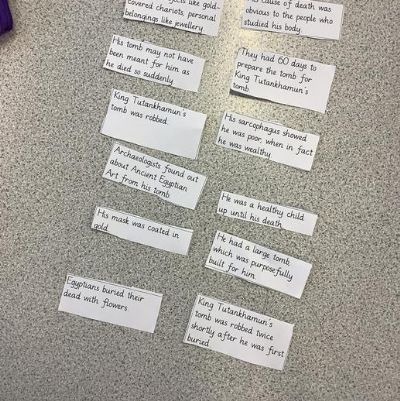 covered chariots, personal
belongings like jewellery
cause of death was
obvious to the people who
studied his body.
His tomb may not have
been meant for him as
he died so suddenly
They had 60 days to
prepare the tomb for
King Tutankhamun's
tomb.
King Tutankhamun's
tomb was robbed.
His sarcophagus showed
he was poor, when in fact
he was wealthy
Archaeologists found out
about Ancient Egyptian
Art from his tomb
He was a healthy child
up until his death
His mask was coated in
gold
He had a large tomb,
which was purposefully
built for him.
Egyptians buried their
dead with flowers
King Tutankhamun's
tomb was robbed twice
shortly after he was first
buried